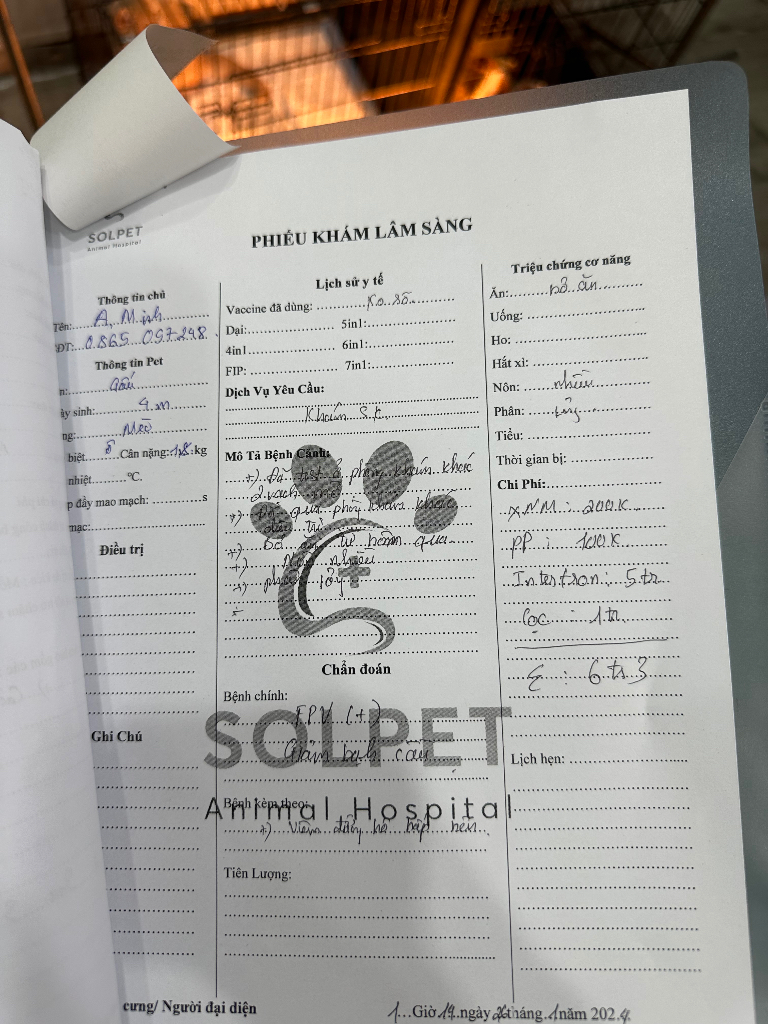 SOLPET
Animal Hospital
PHIẾU KHÁM LÂM SÀNG
Thông tin chủ
Tên: A. Minh
ĐT: 0865 097248
Thông tin Pet
n: Gấu
ày sinh: 4 m
ng: Mèo
biệt Cân nặng: 1,8 kg
nhiệt ℃.
p đầy mao mạch: s
mạc:
Điều trị
Ghi Chú
Lịch sử y tế
Vaccine đã dùng: Ko rõ
Dại: 5in1:
4in1 6in1:
FIP: 7in1:
Dịch Vụ Yêu Cầu:
Khám s.k
Mô Tả Bệnh Cảnh:
+) Đã test ở phòng khám khác
2 vạch mờ
+) Đã qua phòng khám khác
điều trị
+) Bỏ ăn từ hôm qua
+) Nôn nhiều
+) phân lỏng
Chẩn đoán
Bệnh chính:
FPV (+)
Giảm bạch cầu
SOLPET
Animal Hospital
Bệnh kèm theo:
+) Viêm đường hô hấp trên
Tiên Lượng:
Triệu chứng cơ năng
Ăn: bỏ ăn
Uống:
Ho:
Hắt xì:
Nôn: nhiều
Phân: lỏng
Tiểu:
Thời gian bị:
Chi Phí:
XNM: 200K
PP: 100K
5tr
Cọc: 1tr
Σ: 6tr3
Lịch hẹn:
cưng/ Người đại diện
Giờ 14 ngày 26 tháng 1 năm 2024